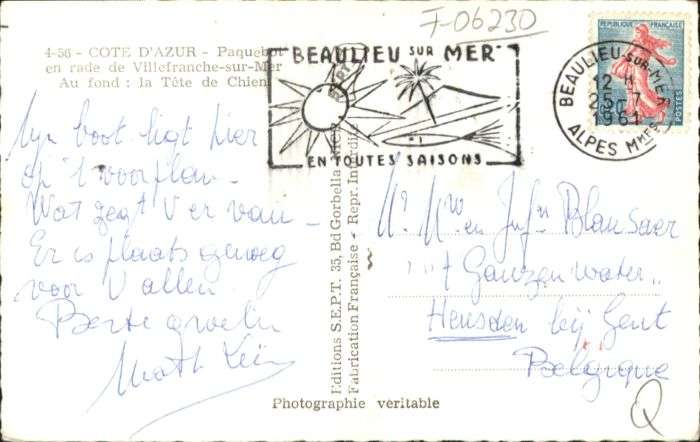 F-06230
4-56 - COTE D'AZUR - Paquebot
en rade de Villefranche-sur-Mer
Au fond : la Tête de Chien
BEAULIEU SUR MER
EN TOUTES SAISONS
BEAULIEU-SUR-MER
12 H
25-7
1961
ALPES MMES
REPUBLIQUE FRANÇAISE
POSTES
Mijn boot ligt hier
op 't voorplan -
Wat zegt U er van -
Er is plaats genoeg
voor U allen.
Beste groeten
Editions S.E.P.T. 35, Bd Gorbella
Fabrication Française - Repr. Interdite
Mr. Mw en Jufn Blansaer
"'t Ganzenwater"
Heusden bij Gent
Belgique
Photographie véritable
Q